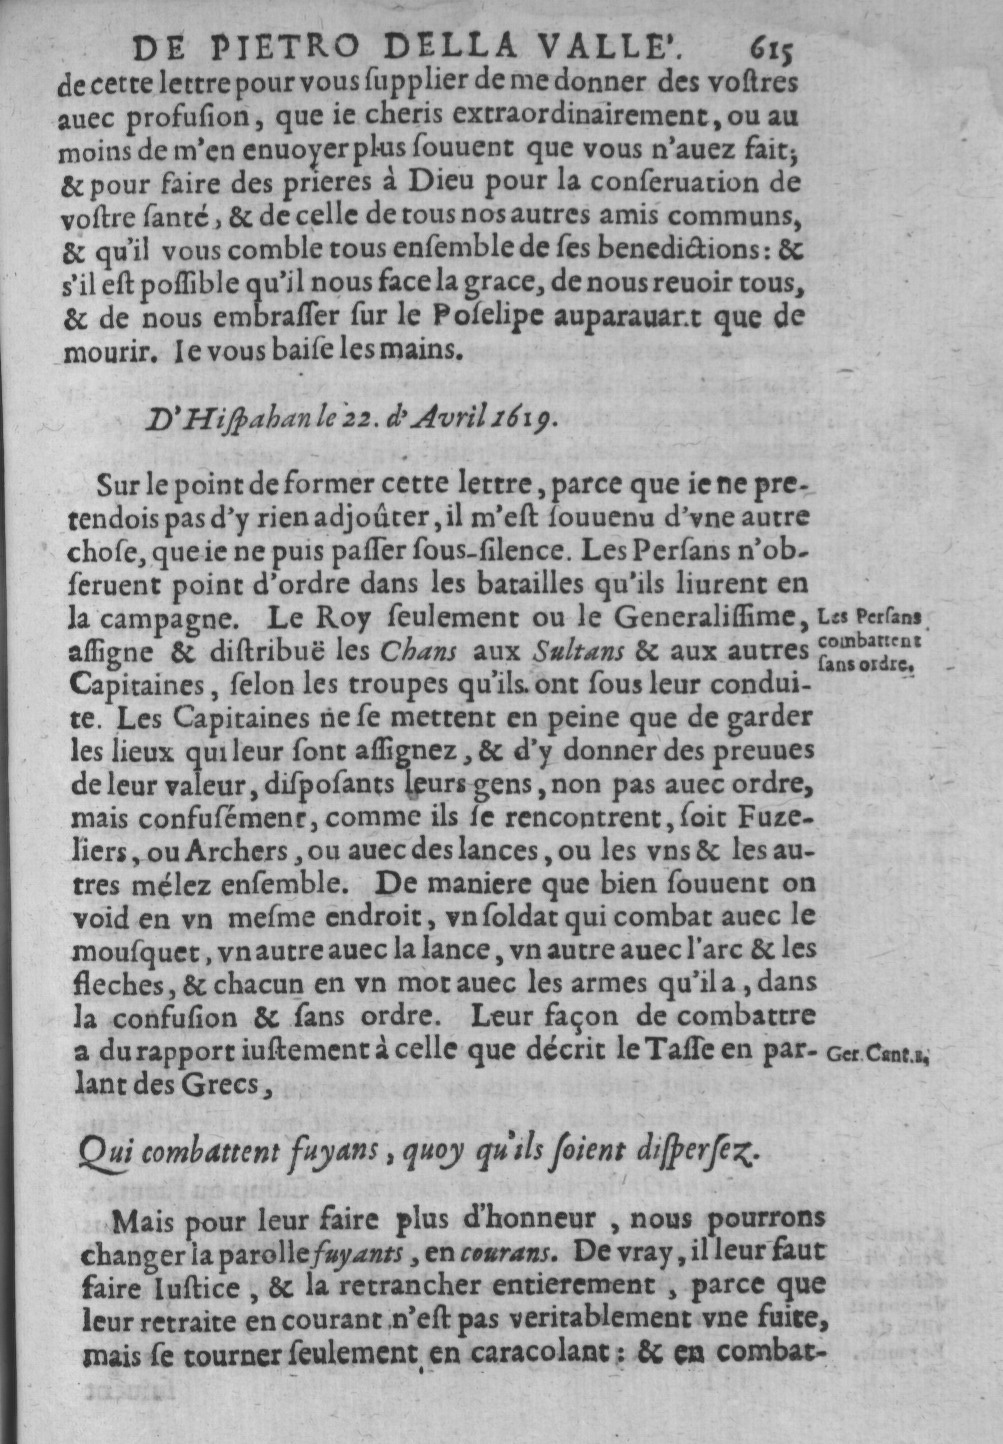 DE PIETRO DELLA VALLE'. 615
de cette lettre pour vous ſupplier de me donner des voſtres
auec profuſion, que ie cheris extraordinairement, ou au
moins de m'en enuoyer plus ſouuent que vous n'auez fait;
& pour faire des prieres à Dieu pour la conſeruation de
voſtre ſanté, & de celle de tous nos autres amis communs,
& qu'il vous comble tous enſemble de ſes benedictions: &
s'il eſt poſſible qu'il nous face la grace, de nous reuoir tous,
& de nous embraſſer ſur le Poſelipe auparauant que de
mourir. Ie vous baiſe les mains.
D'Hiſpahan le 22. d'Avril 1619.
Sur le point de former cette lettre, parce que ie ne pre-
tendois pas d'y rien adjoûter, il m'eſt ſouuenu d'vne autre
choſe, que ie ne puis paſſer ſous-ſilence. Les Perſans n'ob-
ſeruent point d'ordre dans les batailles qu'ils liurent en
la campagne. Le Roy ſeulement ou le Generaliſſime,
aſſigne & diſtribuë les Chans aux Sultans & aux autres
Capitaines, ſelon les troupes qu'ils ont ſous leur condui-
te. Les Capitaines ne ſe mettent en peine que de garder
les lieux qui leur ſont aſſignez, & d'y donner des preuues
de leur valeur, diſpoſants leurs gens, non pas auec ordre,
mais confuſément, comme ils ſe rencontrent, ſoit Fuze-
liers, ou Archers, ou auec des lances, ou les vns & les au-
tres mélez enſemble. De maniere que bien ſouuent on
void en vn meſme endroit, vn ſoldat qui combat auec le
mouſquet, vn autre auec la lance, vn autre auec l'arc & les
fleches, & chacun en vn mot auec les armes qu'il a, dans
la confuſion & ſans ordre. Leur façon de combattre
a du rapport iuſtement à celle que décrit le Taſſe en par-
lant des Grecs,
Les Perſans
combattent
ſans ordre.
Ger. Cant. 1,
Qui combattent fuyans, quoy qu'ils ſoient diſperſez.
Mais pour leur faire plus d'honneur, nous pourrons
changer la parolle fuyants, en courans. De vray, il leur faut
faire Iuſtice, & la retrancher entierement, parce que
leur retraite en courant n'eſt pas veritablement vne fuite,
mais ſe tourner ſeulement en caracolant: & en combat-